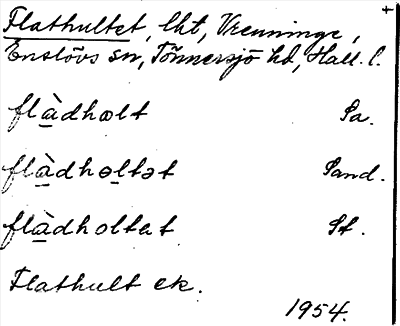 Flathultet, lht, Vrenninge, +
Enslövs sn, Tönnersjö hd, Hall. l.
flàdhωlt Sa.
flàdhɵltət Sand.
flàdholtat St.
Flathult ek.
1954.